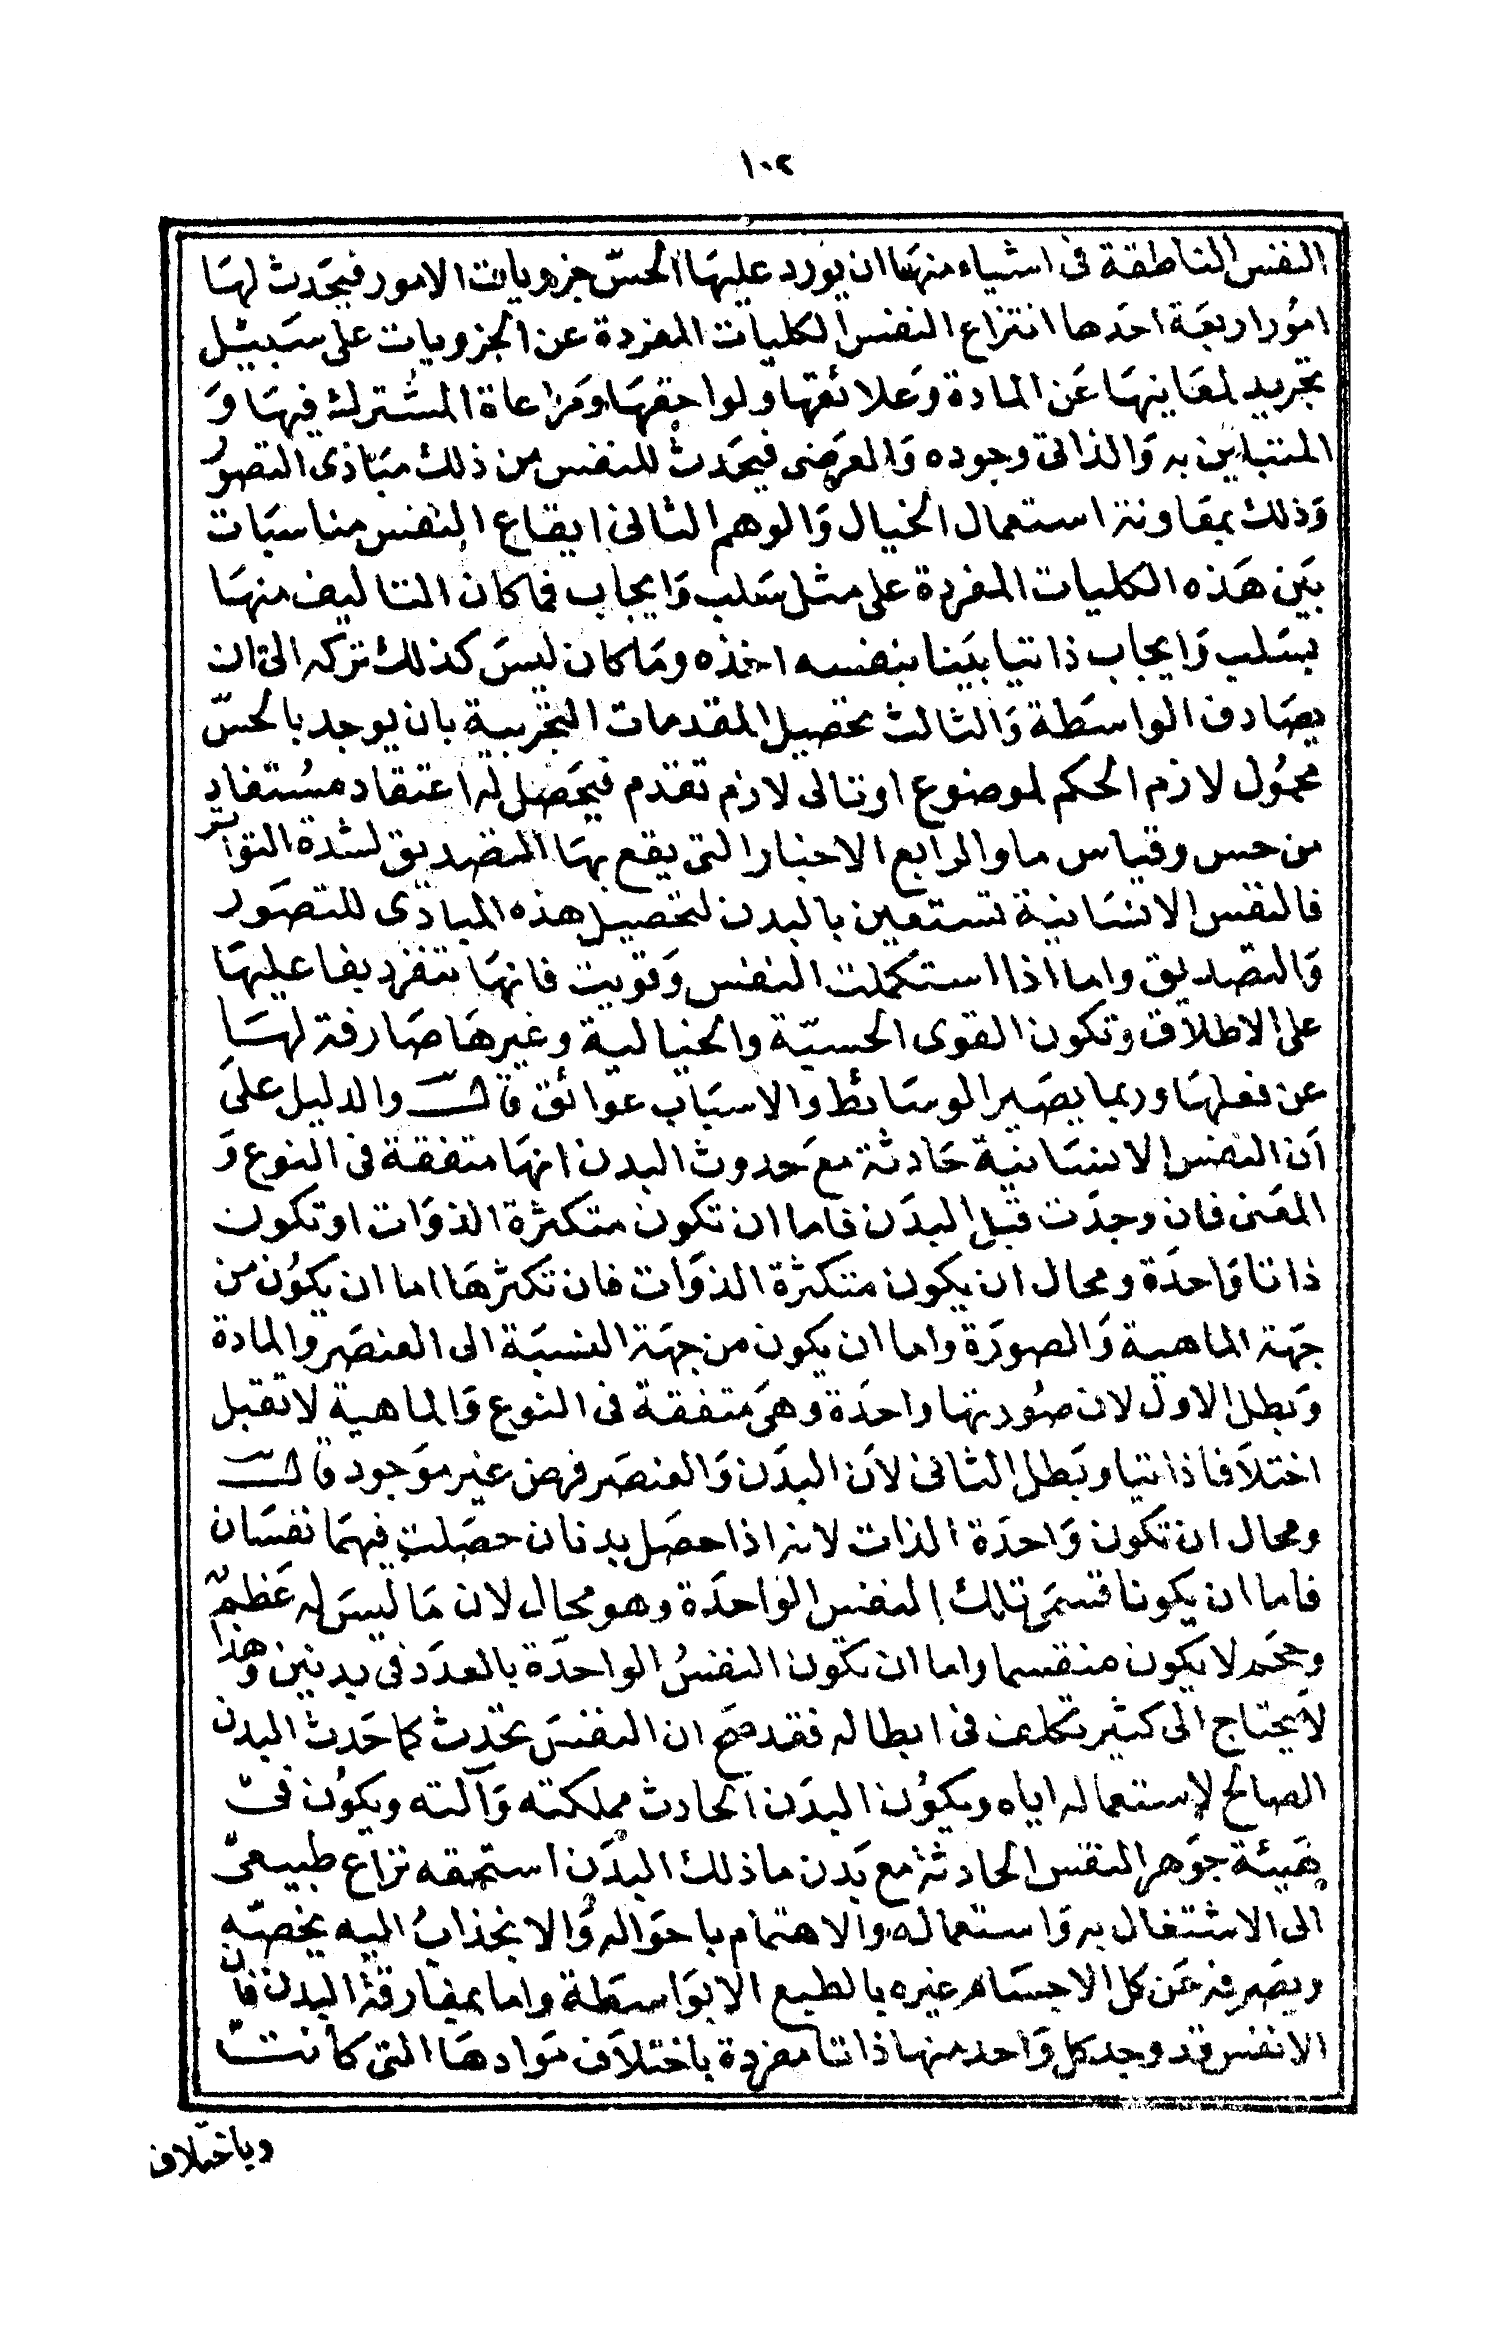 ١٠٢
النفس الناطقة فى اشياء منها ان يورد عليها الحسّ جزويات الامور فيحدث لها
امورا ربعة احدها انتزاع النفس الكليات المفردة عن الجزويات على سبيل
تجريد لمعاينها عن المادة وعلائقها ولواحقها ومراعاة المشترك فيها و
المتباين به والذاتى وجوده والعرضى فيحدث للنفس من ذلك مبادى التصور
وذلك بمعاونة استعمال الخيال والوهم الثانى ايقاع النفس مناسبات
بين هذه الكليات المفردة على مثل سلب وايجاب فما كان التاليف منها
بسلب وايجاب ذاتيا بينا بنفسه اخذه وما كان ليس كذلك تركه الى ان
يصادف الواسطة والثالث تحصيل المقدمات التجربية بان يوجد بالحسّ
محمول لازم الحكم لموضوع اوتالى لازم تقدم فيحصل له اعتقاد مستفاد
من حس وقياس ما والرابع الاخبار التى يقع بها التصديق لشدة التواتر
فالنفس الانسانية تستعين بالبدن لتحصيل هذه المبادى للتصور
والتصديق واما اذا استكملت النفس وقويت فانها تتفرد بفاعليها
على الاطلاق وتكون القوى الحسيّة والخيالية وغيرها صارفة لها
عن فعلها وربما يصير الوسائط والاسباب عوائق قال والدليل على
ان النفس الانسانية حادثة مع حدوث البدن انها متفقة فى النوع و
المعنى فان وجدت قبل البدن فاما ان تكون متكثرة الذوات او تكون
ذاتا واحدة ومحال ان يكون متكثرة الذوات فان تكثرها اما ان يكون من
جهة الماهية والصورة واما ان يكون من جهة النسبة الى العنصر والمادة
وبطل الاول لان صورتها واحدة وهى متفقة فى النوع والماهية لا تقبل
اختلافا ذاتيا وبطل الثانى لان البدن والعنصر فرض غير موجود قال
ومحال ان تكون واحدة الذات لانه اذا حصل بدنان حصلت فيهما نفسان
فاما ان يكونا قسمى تلك النفس الواحدة وهو محال لان ما ليس له عظم
وحجم لا يكون منقسما واما ان تكون النفسُ الواحدة بالعدد فى بدنين وهذا
لا يحتاج الى كثير تكلف فى ابطاله فقد صح ان النفس تحدث كما حدث البدن
الصالح لاستعماله اياه ويكون البدن الحادث مملكته وآلته ويكون فى
هيئة جوهر النفس الحادثة مع بدن ما ذلك البدن استحقه نزاع طبيعىّ
الى الاشتغال به واستعماله والاهتمام باحواله والانجذابُ اليه يخصّه
ويصرفه عن كل الاجسام غيره بالطبع الا بواسطة واما بمفارقة البدن فان
الانفس قد وجد كل واحد منها ذاتا مفردة باختلاف موادها التى كانت
وباختلاف